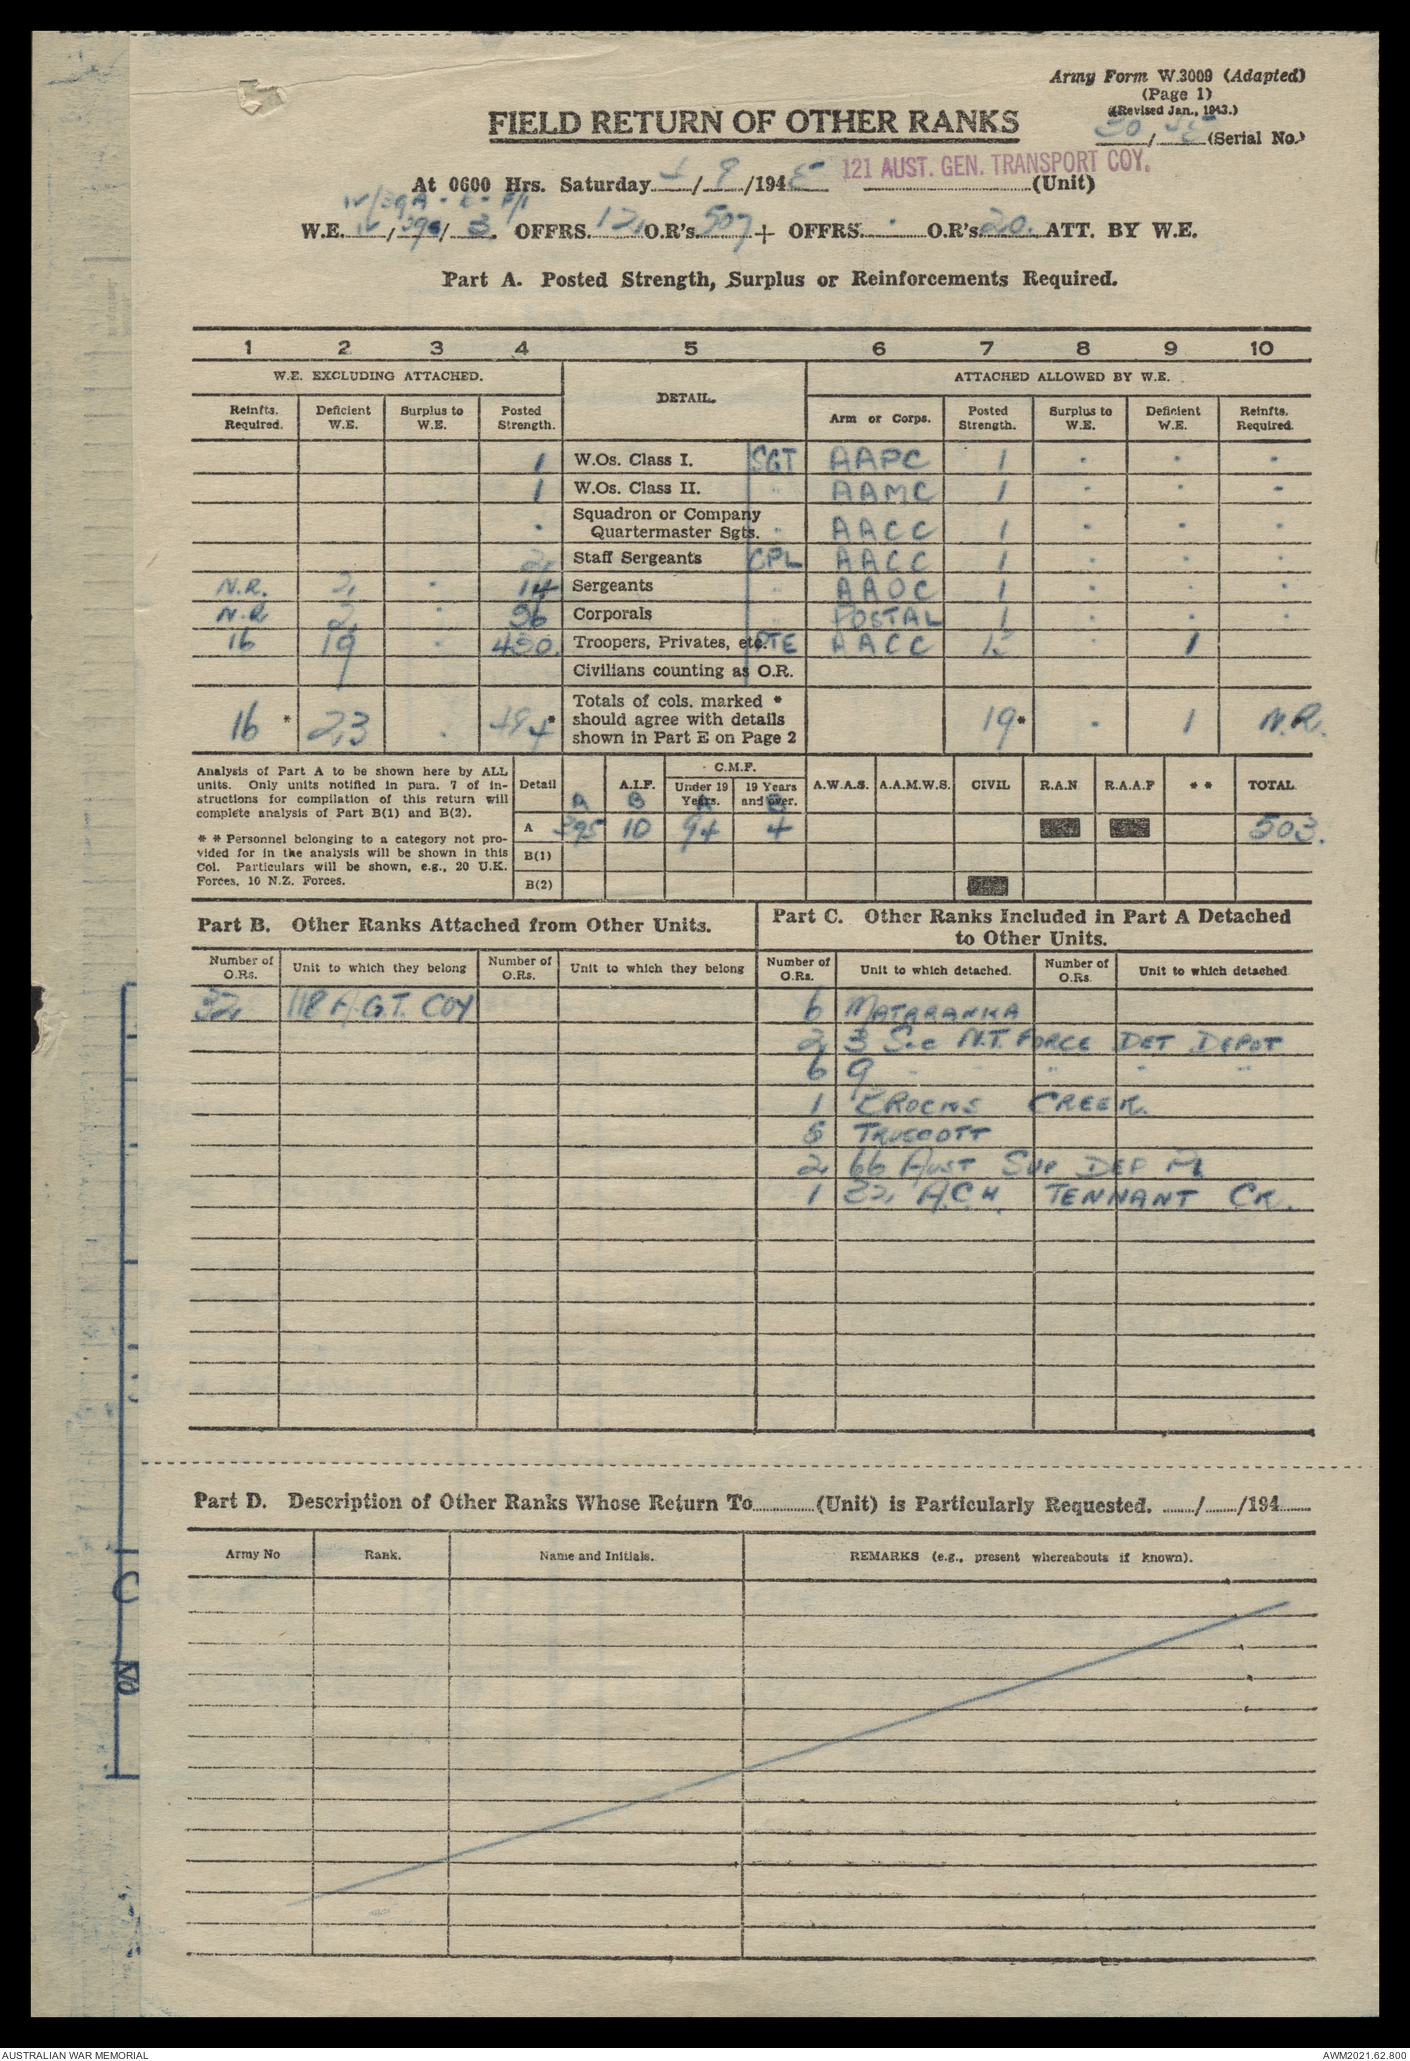 Army Form W.3009 (Adapted)
(Page 1)
(Revised Jan., 1943.)
FIELD RETURN OF OTHER RANKS
30/45 (Serial No.)
At 0600 Hrs. Saturday / 9 /1945 121 AUST. GEN. TRANSPORT COY. (Unit)
IV/39A - E - F/1
W.E. IV / 39 / 3. OFFRS. 12, O.R's. 507 + OFFRS. · O.R's 20. ATT. BY W.E.
Part A. Posted Strength, Surplus or Reinforcements Required.
1 2 3 4 5 6 7 8 9 10
W.E. EXCLUDING ATTACHED. DETAIL. ATTACHED ALLOWED BY W.E.
Reinfts. Required. Deficient W.E. Surplus to W.E. Posted Strength. Arm or Corps. Posted Strength. Surplus to W.E. Deficient W.E. Reinfts. Required.
1 W.Os. Class I. SGT AAPC 1 · · ·
1 W.Os. Class II. " AAMC 1 · · ·
· Squadron or Company Quartermaster Sgts. " AACC 1 · · ·
2, Staff Sergeants CPL AACC 1 · · ·
N.R. 2, · 14 Sergeants " AAOC 1 · · ·
N.R 2, · 36 Corporals " POSTAL 1 · · ·
16 19 · 430. Troopers, Privates, etc. PTE AACC 13 · 1
Civilians counting as O.R.
16 * 23 · 484* Totals of cols. marked * should agree with details shown in Part E on Page 2 19* · 1 N.R.
Analysis of Part A to be shown here by ALL units. Only units notified in para. 7 of instructions for compilation of this return will complete analysis of Part B(1) and B(2).
* * Personnel belonging to a category not provided for in the analysis will be shown in this Col. Particulars will be shown, e.g., 20 U.K. Forces, 10 N.Z. Forces.
Detail A.I.F. C.M.F. Under 19 Years. 19 Years and over. A.W.A.S. A.A.M.W.S. CIVIL R.A.N R.A.A.F * * TOTAL
A B A B
A 395 10 94 4 503.
B(1)
B(2)
Part B. Other Ranks Attached from Other Units.
Part C. Other Ranks Included in Part A Detached to Other Units.
Number of O.Rs. Unit to which they belong Number of O.Rs. Unit to which they belong Number of O.Rs. Unit to which detached. Number of O.Rs. Unit to which detached
32, 118 A.G.T. COY 6 MATARANKA
2, 3 Sec N.T. FORCE DET DEPOT
6 9 " " " " "
1 CROCKS CREEK.
5 TRUSCOTT
2, 66 AUST SUP DEP PL
1 22, A.C.H. TENNANT CK.
Part D. Description of Other Ranks Whose Return To (Unit) is Particularly Requested. / /194
Army No Rank. Name and Initials. REMARKS (e.g., present whereabouts if known).
AUSTRALIAN WAR MEMORIAL
AWM2021.62.800